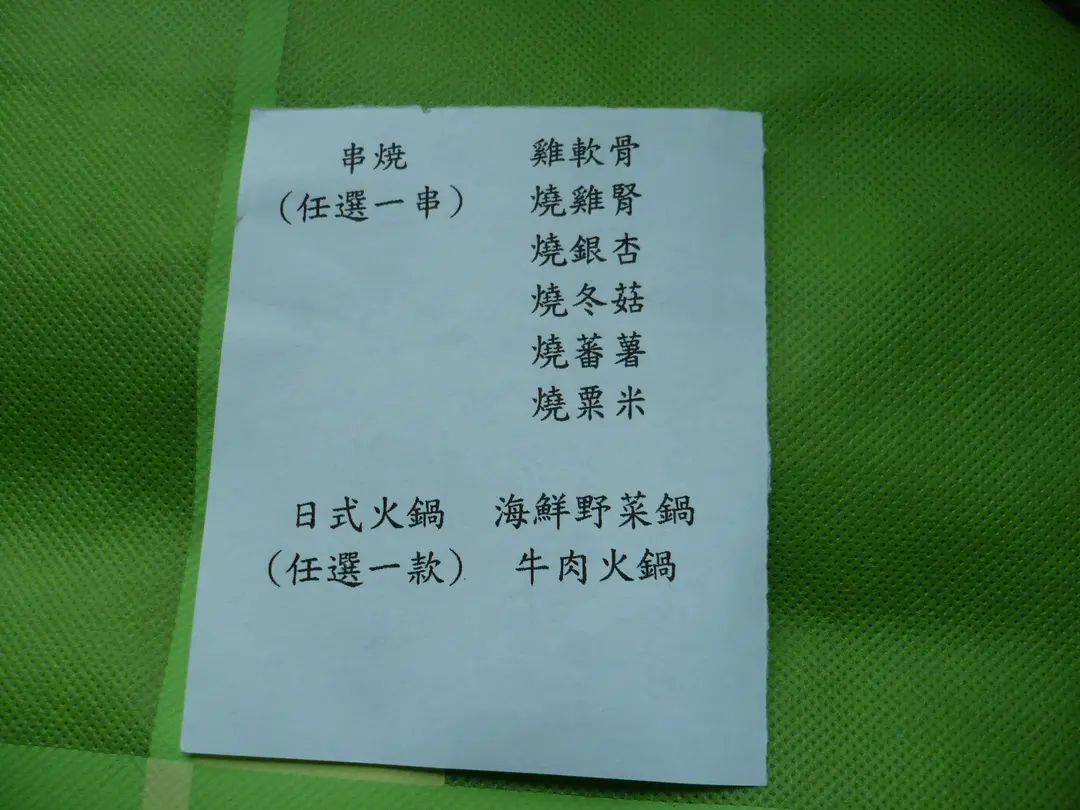 串燒 雞軟骨
(任選一串) 燒雞腎
燒銀杏
燒冬菇
燒蕃薯
燒粟米
日式火鍋 海鮮野菜鍋
(任選一款) 牛肉火鍋